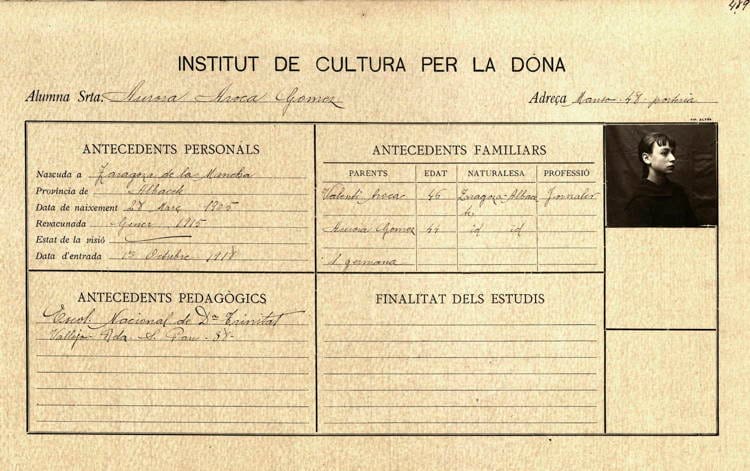 489
INSTITUT DE CULTURA PER LA DÒNA
Alumna Srta: Aurora Aroca Gomez Adreça Manso-48-porteria
ANTECEDENTS PERSONALS
Nascuda a Zaragoza de la Mancha
Província de Albacete
Data de naixement 28 Març 1905
Revacunada Gener 1915
Estat de la visió
Data d'entrada 1r Octubre 1918
ANTECEDENTS FAMILIARS
PARENTS EDAT NATURALESA PROFESSIÓ
Valentí Aroca 46 Zaragoza-Albace Jornaler
te.
Aurora Gomez 44 id id
1 germana
ANTECEDENTS PEDAGÒGICS
Escola Nacional de Dª Trinitat
Vallejo Rda. S. Pau-38-
FINALITAT DELS ESTUDIS